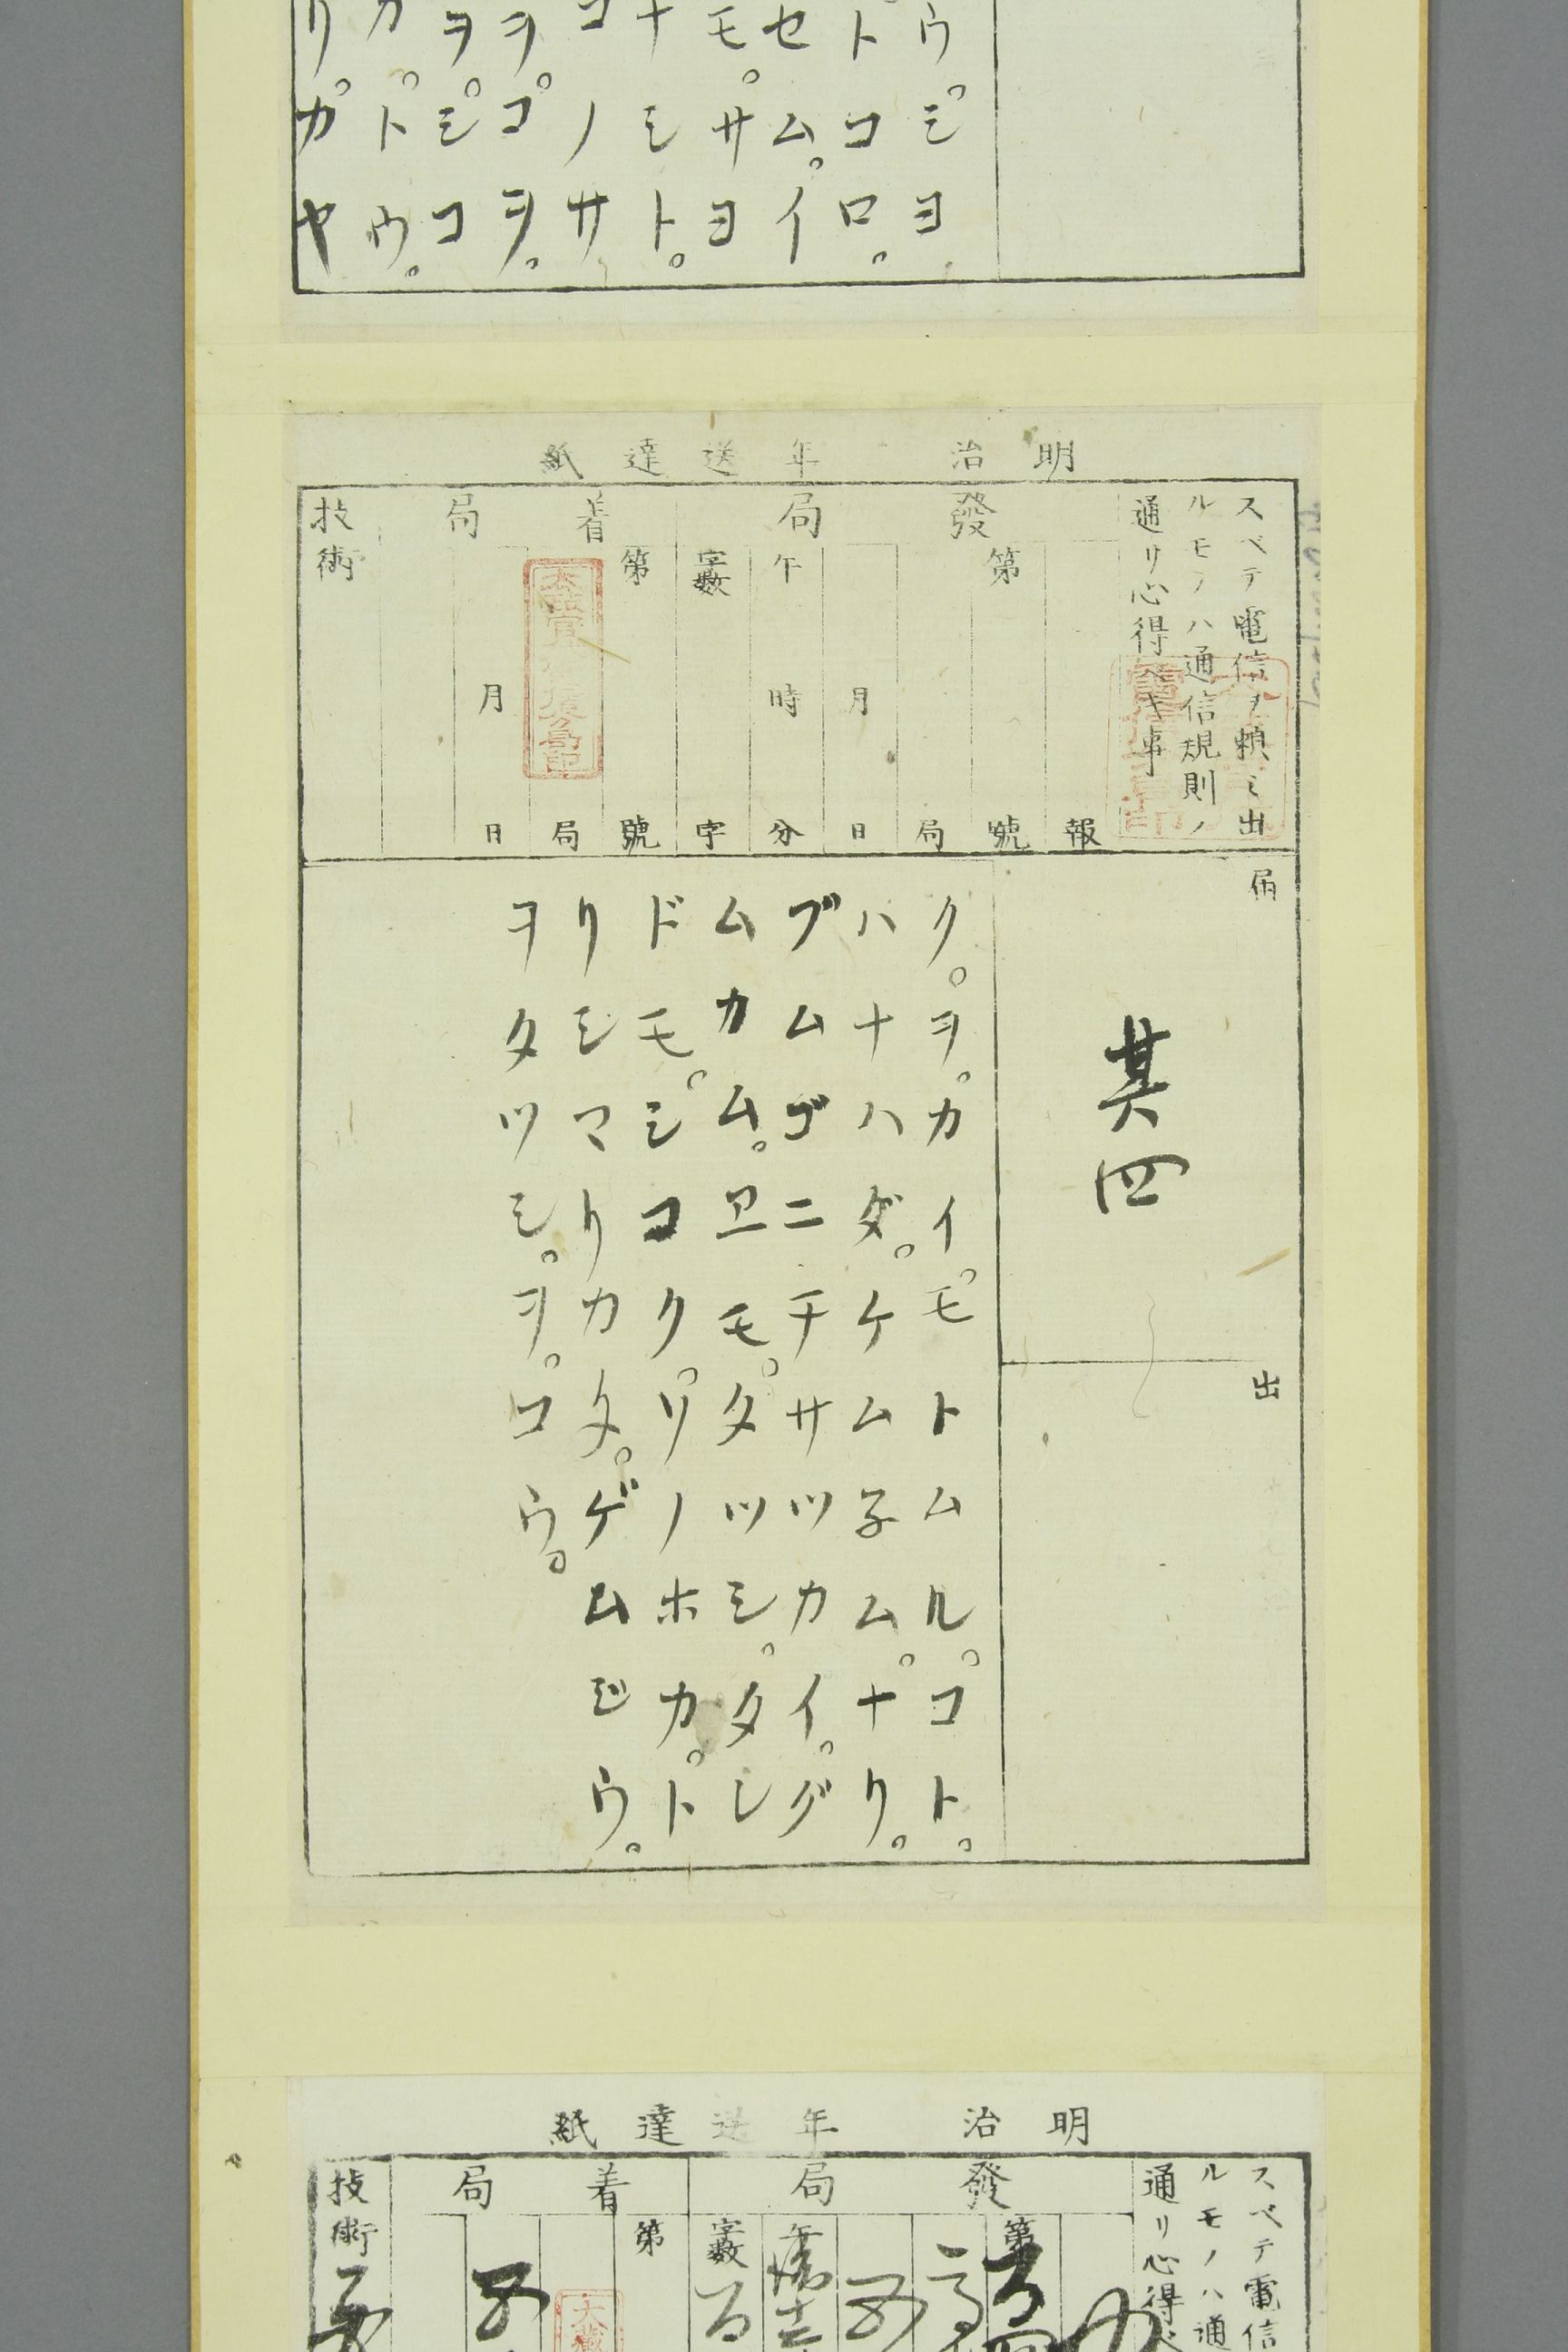 ウ。シヨ
トコロ。
セム。イ
モ。サヨ
ナシト。
コノサ
ヲ。コヲ。
ヲ。シコ
カ。トウ。
リ。カヤ
明治　年送達紙
スベテ電信ヲ頼ミ出
ルモノハ通信規則ノ
通リ心得ベキ事
發局
報
第　號
局
月　日
午　時　分
字數　字
着局
第　號
局
月　日
技術
届
其四
出
ク。ヲ。カイ。モトムル。コト。
ハナハダ。ケム子ム。ナリ。
ブムゴニチサツカイ。グ
ムカム。ヱモ。タツシ。タレ
ドモ。シコク。リノホカ。ト
リシマリカタ。ゲムジウ。
ヲタツシ。ヲ。コウ。
明治　年送達紙
スベテ電信
ルモノハ通
通リ心得
發局
第
字數
着局
第
技術